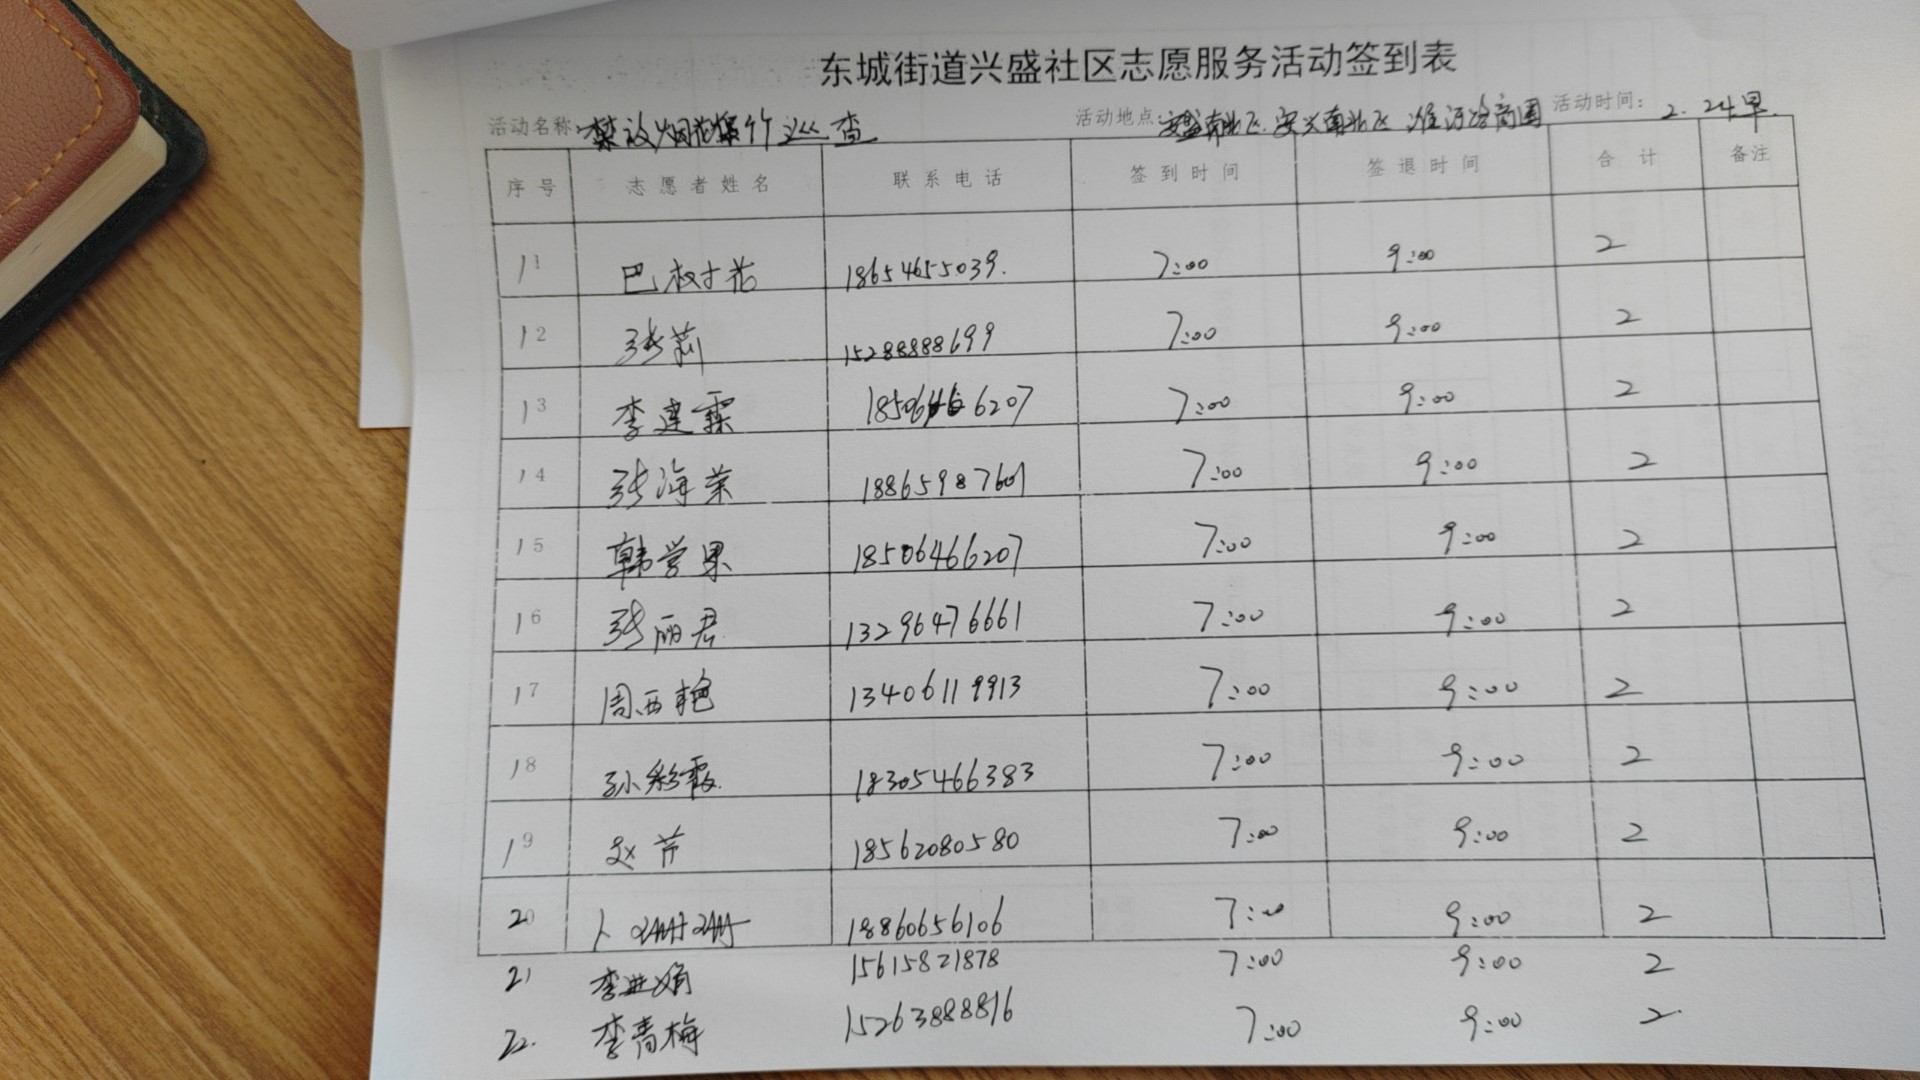 东城街道兴盛社区志愿服务活动签到表
活动名称:禁放烟花爆竹巡查 活动地点:安盛南北区.安兴南北区 淮河路商圈 活动时间: 2.24早.
序号 志愿者姓名 联系电话 签到时间 签退时间 合计 备注
11 巴树花 18654655039. 7:00 9:00 2
12 张莉 15288888699 7:00 9:00 2
13 李建霖 18506466207 7:00 9:00 2
14 张海荣 18865987601 7:00 9:00 2
15 韩学果 18506466207 7:00 9:00 2
16 张丽君 13296476661 7:00 9:00 2
17 周西艳 13406119913 7:00 9:00 2
18 孙彩霞 18305466383 7:00 9:00 2
19 赵芹 18562080580 7:00 9:00 2
20 卜姗姗 18860656106 7:00 9:00 2
21 李娟 15615821878 7:00 9:00 2
22. 李青梅 15263888816 7:00 9:00 2